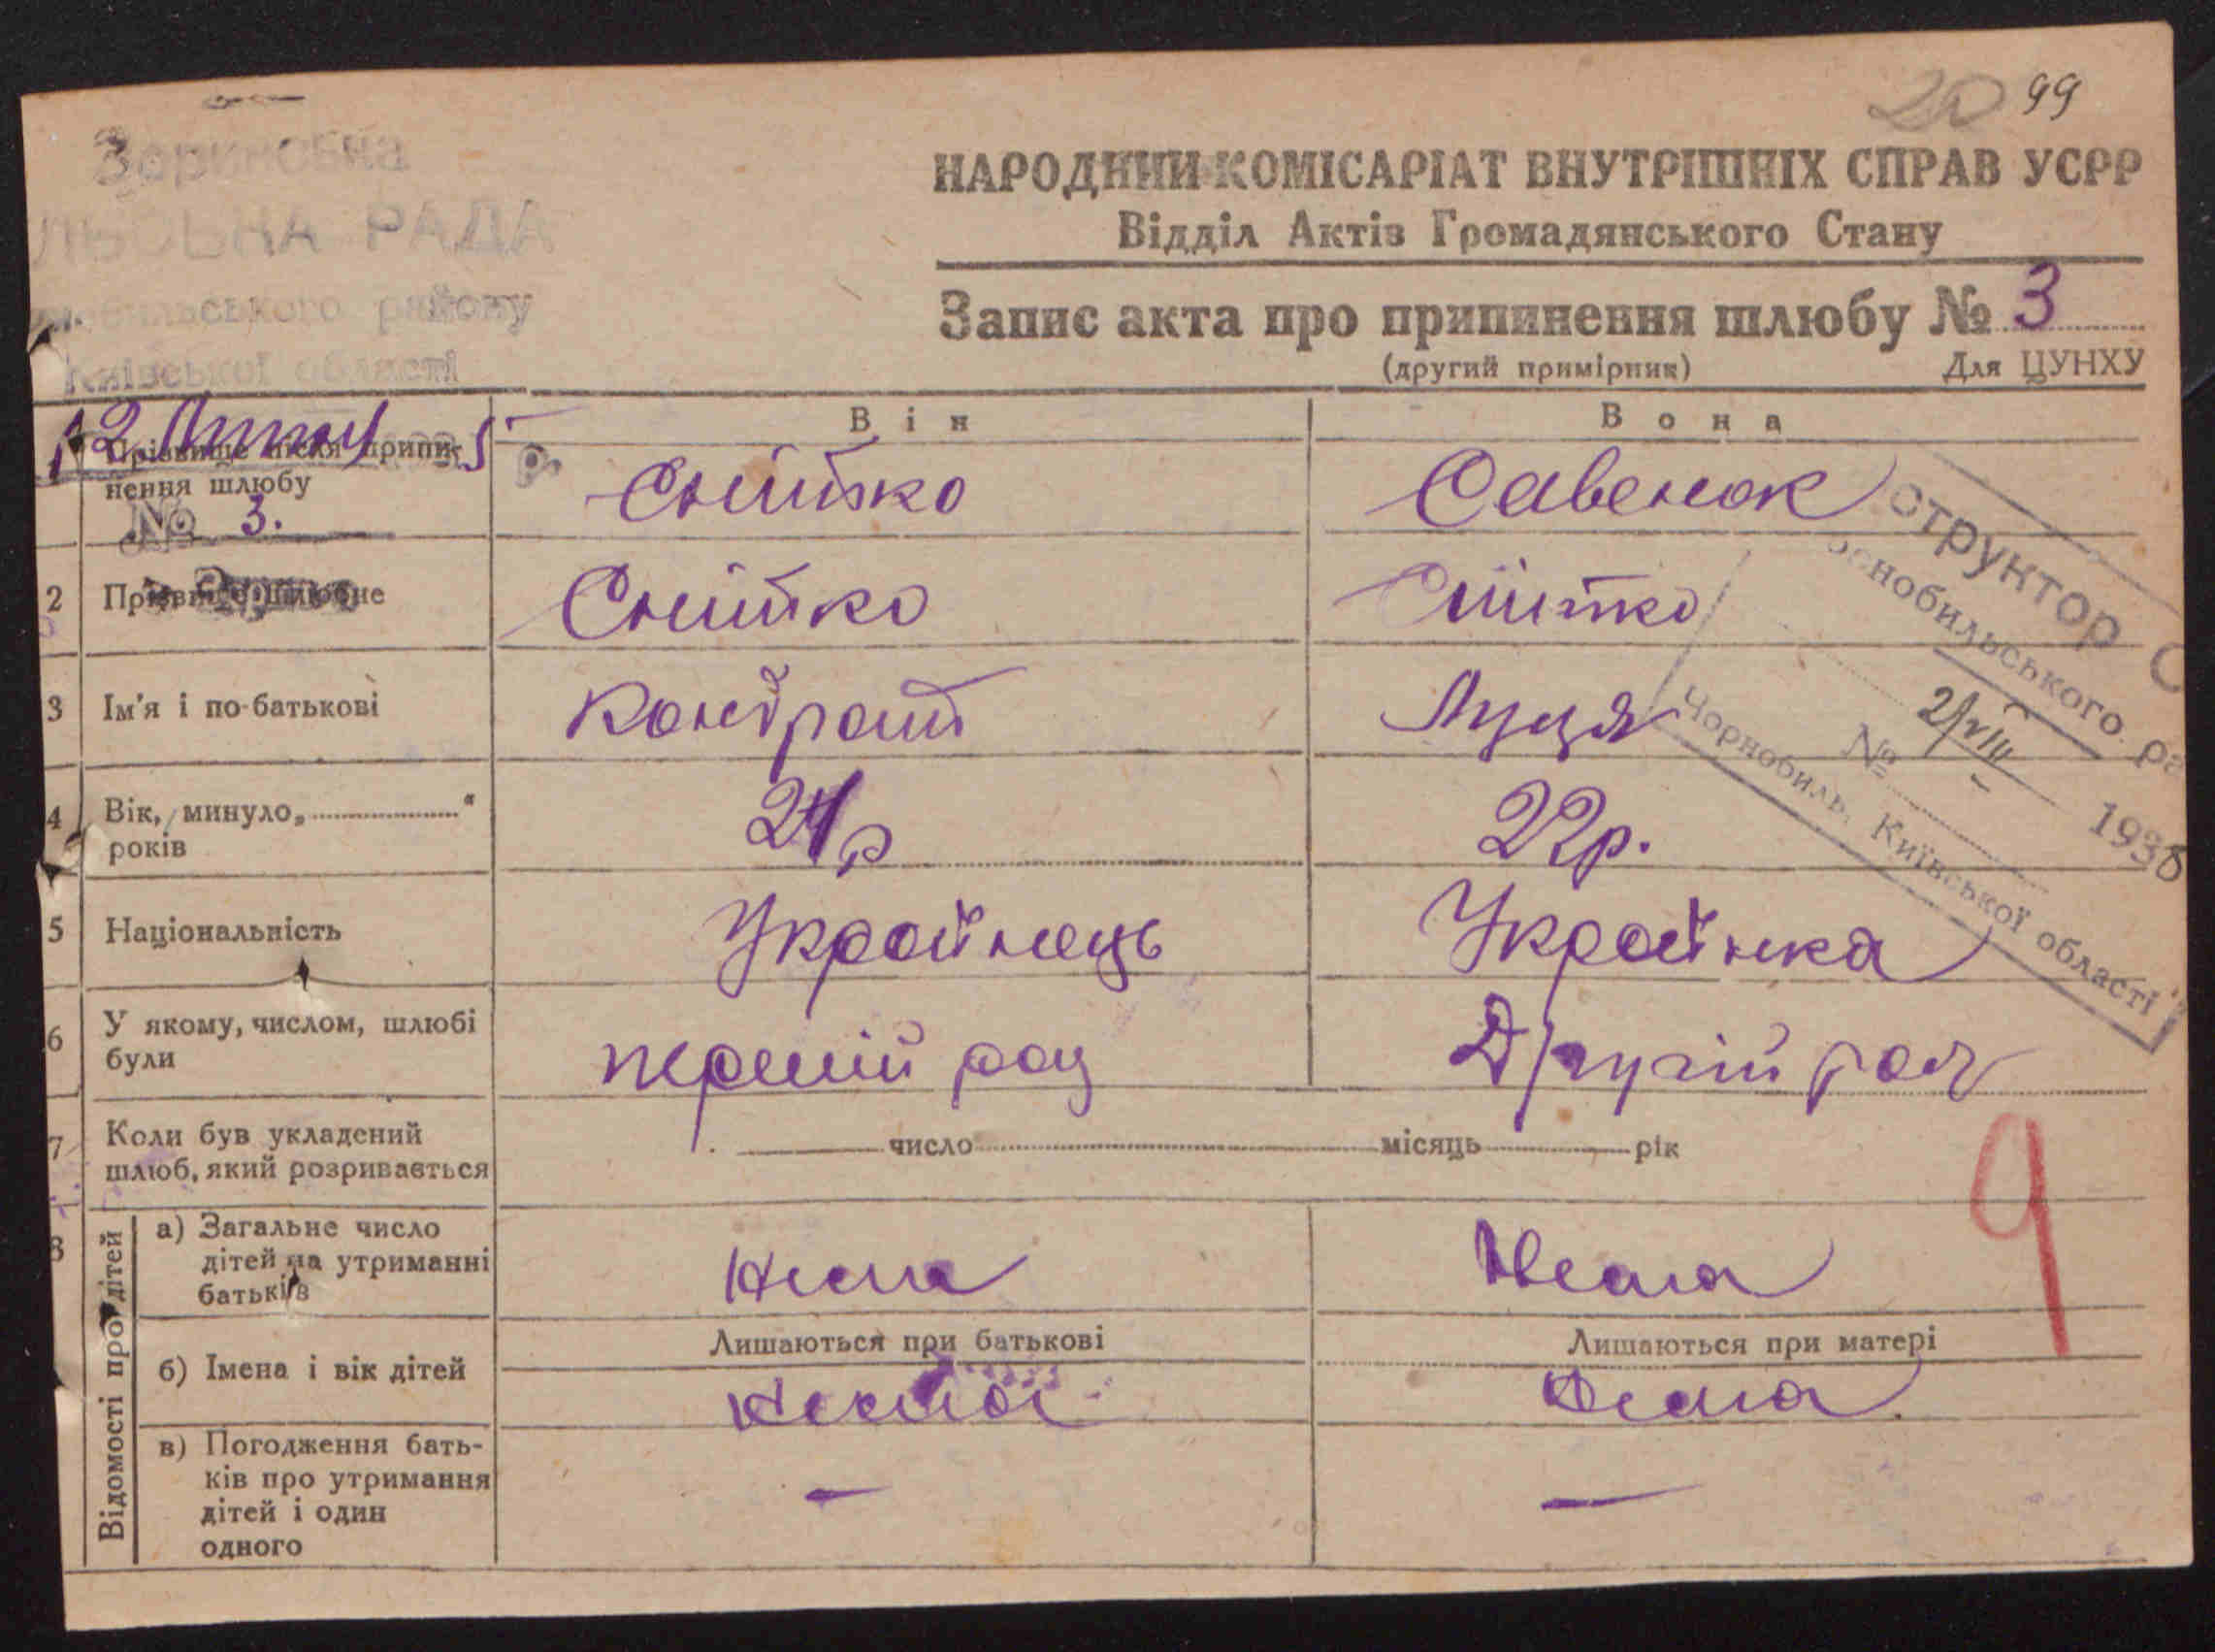 20 99
Зориновна
РАДА
району
Київської області
НАРОДНИЙ КОМІСАРІАТ ВНУТРІШНІХ СПРАВ УСРР
Відділ Актів Громадянського Стану
Запис акта про припинення шлюбу № 3
(другий примірник) Для ЦУНХУ
Він Вона
12 5 р.
Прізвище після припи-
нення шлюбу
№ 3.
Снітко Савенок
2 Прізвище шлюбне Снітко Снітко
3 Ім'я і по-батькові Кондрат Луця
4 Вік, минуло „ “
років
24р 22р.
5 Національність Україінець Украінка
6 У якому, числом, шлюбі
були
перший раз Другий раз
7 Коли був укладений
шлюб, який розривається
число місяць рік
8 Відомості про дітей
а) Загальне число
дітей на утриманні
батьків
Нема Нема
Лишаються при батькові Лишаються при матері
б) Імена і вік дітей
Нема
в) Погодження бать-
ків про утримання
дітей і один
одного
— —
структор С
рнобильського ра
№ 2/VIII 1935
Чорнобиль, Київської області
9